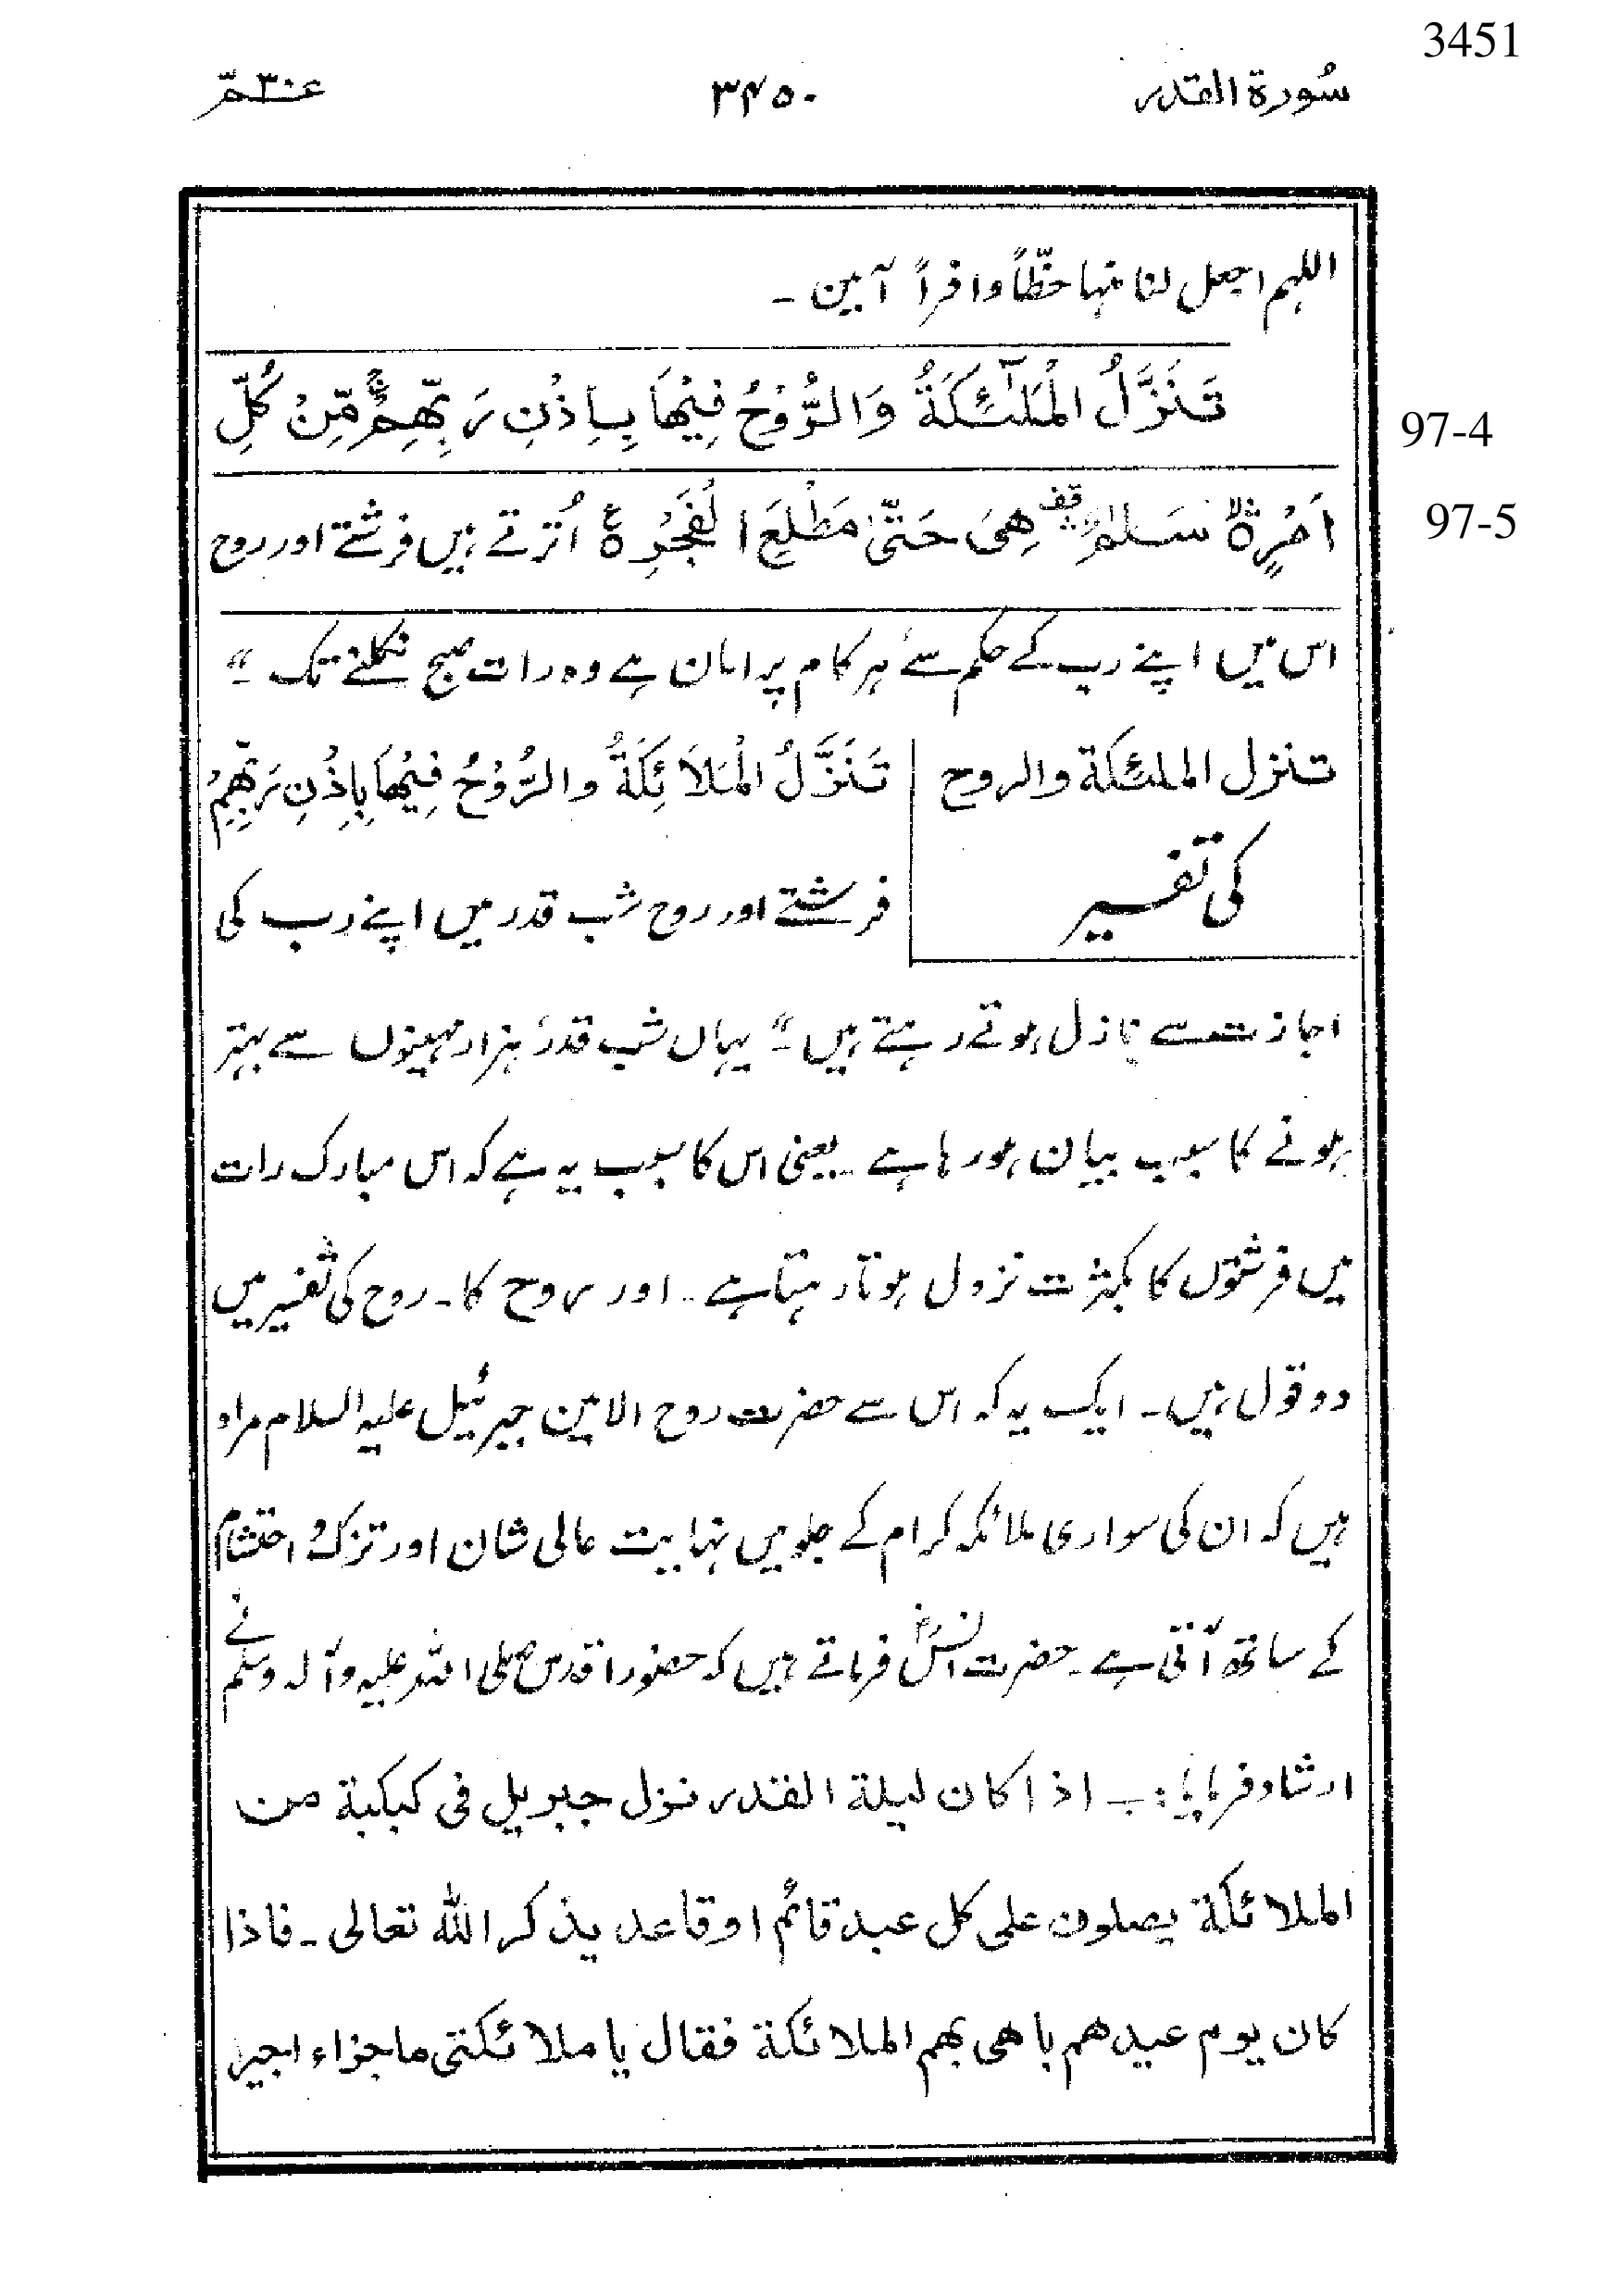 3451
سُورة القدر ۳۴۵۰ عم ۳۰
اللہم اجعل لنا منہا حظّاً وافراً آمین ۔
تَنَزَّلُ الْمَلٰٓئِكَةُ وَالرُّوْحُ فِيْهَا بِاِذْنِ رَبِّهِمْ ۚ مِّنْ كُلِّ
97-4
اَمْرٍ ۙ سَلٰمٌ ۛ قف هِىَ حَتّٰى مَطْلَعِ الْفَجْرِ ۧ اُترتے ہیں فرشتے اور روح
97-5
اس میں اپنے رب کے حکم سے ہر کام پر امان ہے وہ رات صبح نکلنے تک ۔"
تنزل الملئکة والروح
کی تفسیر
تَنَزَّلُ الْمَلَائِكَةُ والرُّوْحُ فِيْهَا بِاِذْنِ رَبِّهِمْ
فرشتے اور روح شب قدر میں اپنے رب کی
اجازت سے نازل ہوتے رہتے ہیں ۔" یہاں شب قدر ہزار مہینوں سے بہتر
ہونے کا سبب بیان ہو رہا ہے ۔ یعنی اس کا سبب یہ ہے کہ اس مبارک رات
میں فرشتوں کا بکثرت نزول ہوتا رہتا ہے ۔ اور روح کا ۔ روح کی تفسیر میں
دو قول ہیں ۔ ایک یہ کہ اس سے حضرت روح الامین جبرئیل علیہ السلام مراد
ہیں کہ ان کی سواری ملائکہ کرام کے جلو میں نہایت عالی شان اور تزک و احتشام
کے ساتھ آتی ہے ۔ حضرت انسؓ فرماتے ہیں کہ حضور اقدس صلی اللہ علیہ وآلہ وسلم نے
ارشاد فرمایا :۔ اذا كان ليلة القدر نزل جبريل فى كبكبة من
الملائكة يصلون على كل عبد قائم او قاعد يذكر الله تعالى ۔ فاذا
كان يوم عيدهم باهى بهم الملائكة فقال يا ملائكتى ما جزاء اجير